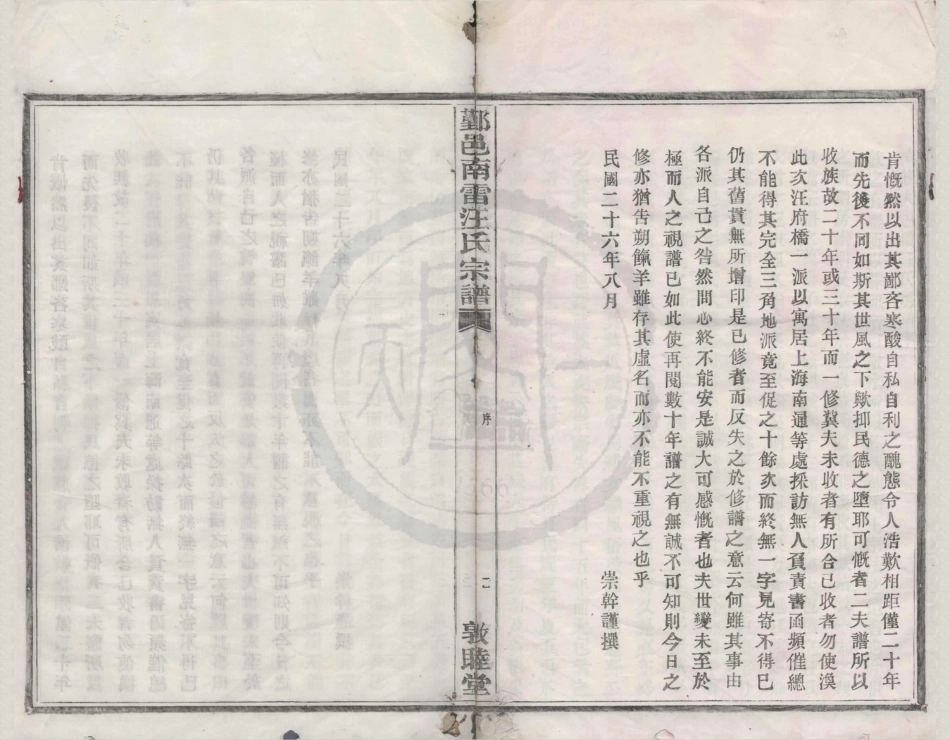 肯慨然以出其鄙吝寒酸自私自利之醜態令人浩歎相距僅二十年
而先後不同如斯其世風之下歟抑民德之墮耶可慨者二夫譜所以
收族故二十年或三十年而一修冀夫未收者有所合已收者勿使渙
此次汪府橋一派以寓居上海南通等處採訪無人負責書函頻催總
不能得其完全三角地派竟至促之十餘次而終無一字見寄不得已
仍其舊貫無所增印是已修者而反失之於修譜之意云何雖其事由
各派自己之咎然問心終不能安是誠大可感慨者也夫世變未至於
極而人之視譜已如此使再閱數十年譜之有無誠不可知則今日之
修亦猶告朔餼羊雖存其虛名而亦不能不重視之也乎
崇幹謹撰
民國二十六年八月
鄞邑南雷汪氏宗譜
序
二
敦睦堂